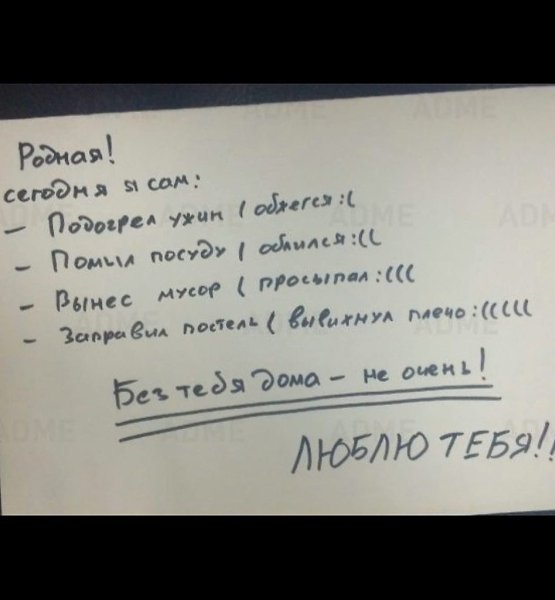 Родная!
сегодня я сам:
– Подогрел ужин ( обжегся :(
– Помыл посуду ( облился :((
– Вынес мусор ( просыпал :(((
– Заправил постель ( вывихнул плечо :(((((
Без тебя дома – не очень!
ЛЮБЛЮ ТЕБЯ!!
ADME
ADME
ADME
ADME
ADME
ADME
ADME
ADME